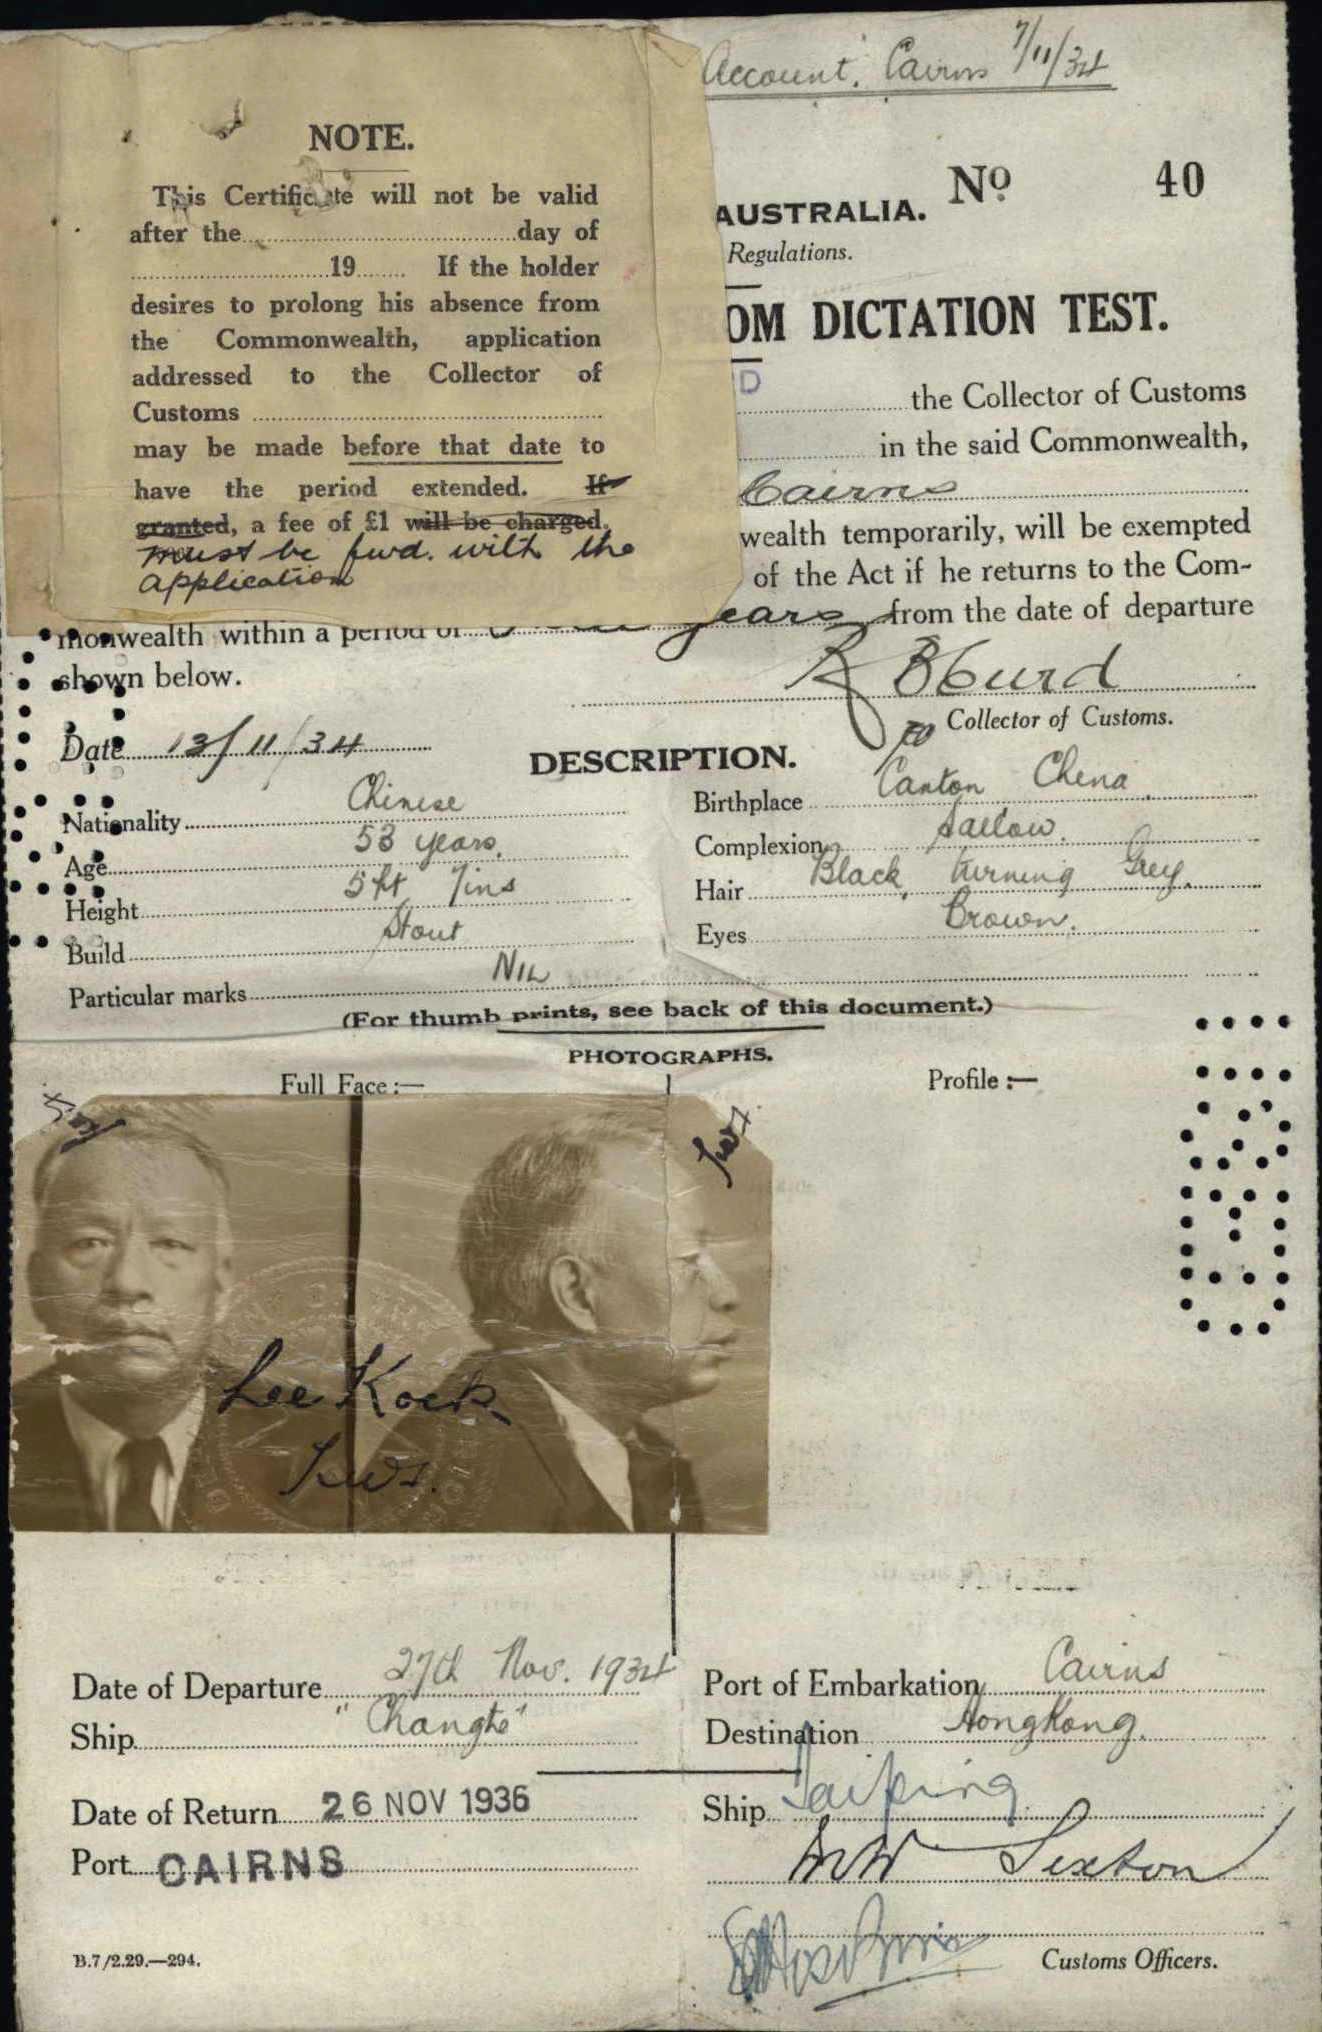 Account, Cairns 7/11/34
NOTE.
This Certificate will not be valid
after the day of
19 If the holder
desires to prolong his absence from
the Commonwealth, application
addressed to the Collector of
Customs
may be made before that date to
have the period extended. If
granted, a fee of £1 will be charged.
must be fwd. with the
application
No 40
AUSTRALIA.
Regulations.
OM DICTATION TEST.
D
the Collector of Customs
in the said Commonwealth,
Cairns
wealth temporarily, will be exempted
of the Act if he returns to the Com-
monwealth within a period of years from the date of departure
shown below.
Collector of Customs.
Date 13/11/34
DESCRIPTION.
Nationality Chinese
Birthplace Canton China
Age 53 years.
Complexion Sallow.
Height 5 ft 7 ins
Hair Black, turning Grey.
Build Stout
Eyes Brown.
Particular marks NIL
(For thumb prints, see back of this document.)
PHOTOGRAPHS.
Full Face:—
Profile:—
Lee Kock
Date of Departure 27th Nov. 1934
Port of Embarkation Cairns
Ship "Changte"
Destination HongKong.
Date of Return 26 NOV 1936
Ship Taiping
Port CAIRNS
Sexton
B.7/2.29.—294.
Customs Officers.